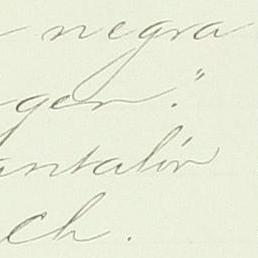 negra
gen."
antalör
ch.